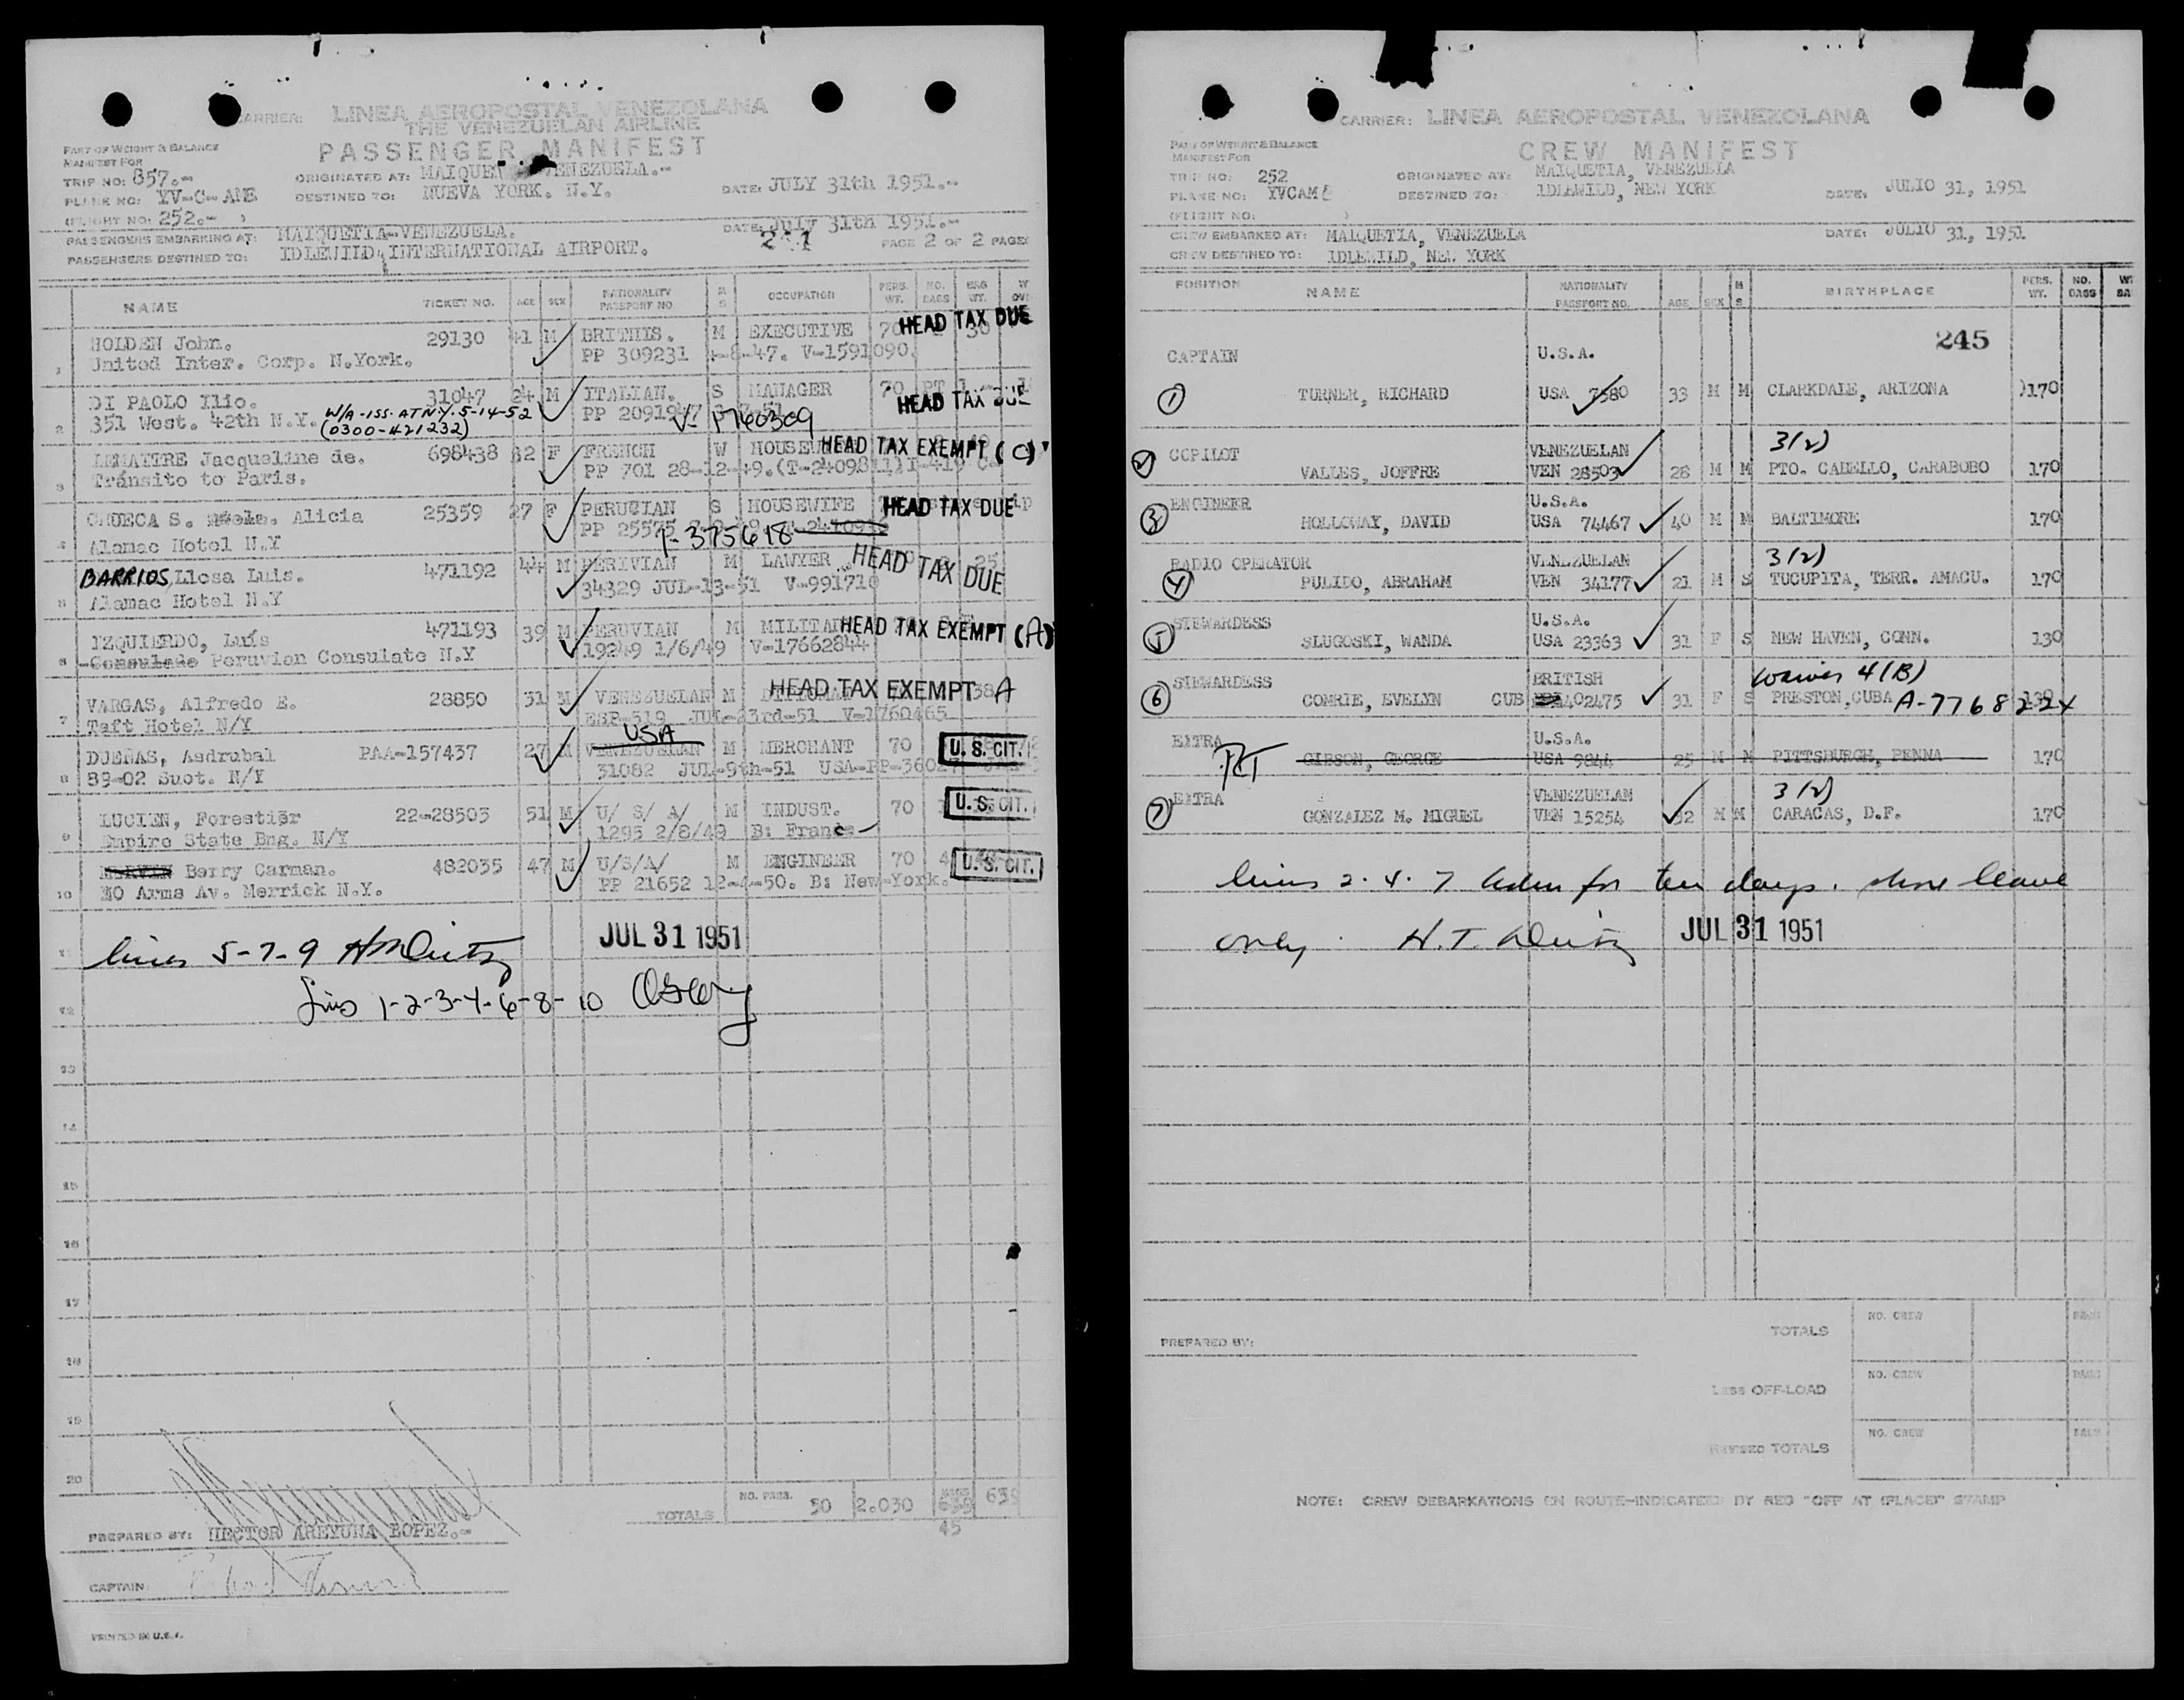 CARRIER: LINEA AEROPOSTAL VENEZOLANA
THE VENEZUELAN AIRLINE
PASSENGER MANIFEST
PART OF WEIGHT & BALANCE
MANIFEST FOR
TRIP NO: 857.-
ORIGINATED AT: MAIQUE VENEZUELA.-
PLANE NO: YV-C-AME
DESTINED TO: NUEVA YORK. N.Y.
DATE: JULY 31th 1951.-
(FLIGHT NO: 252.- )
PASSENGERS EMBARKING AT: MAIQUETIA-VENEZUELA.
DATE: July 31th 1951.-
PASSENGERS DESTINED TO: IDLEWILD INTERNATIONAL AIRPORT.
PAGE 2 OF 2 PAGES
NAME TICKET NO. AGE SEX NATIONALITY PASSPORT NO. M S OCCUPATION PERS. WT. NO. BAGS BAG WT.
1 HOLDEN John. 29130 41 M BRITHIS. M EXECUTIVE 70 30 HEAD TAX DUE
United Inter. Corp. N.York. PP 309231 -8-47. V-1591090.
2 DI PAOLO Ilio. 31047 24 M ITALIAN. S MANAGER 70 HEAD TAX DUE
351 West. 42th N.Y. W/A-ISS. AT N.Y. 5-14-52 PP V-1760309
(0300-421232)
3 LEMAITRE Jacqueline de. 698438 32 F FRENCH W HEAD TAX EXEMPT (C)
Tránsito to Paris. PP 701 28-12-49.
4 S. Alicia 25359 27 F PERUCIAN S HOUSEWIFE HEAD TAX DUE
Alamac Hotel N.Y PP 25575 T-375618
5 BARRIOS, Llosa Luis. 471192 44 M PERIVIAN M LAWYER 25 HEAD TAX DUE
Alamac Hotel N.Y 34329 JUL-13-51 V-991710
6 IZQUIERDO, Luís 471193 39 M PERUVIAN M HEAD TAX EXEMPT (A)
Consulado Peruvian Consulate N.Y 19249 1/6/49 V-17662844
7 VARGAS, Alfredo E. 28850 31 M VENEZUELAN M HEAD TAX EXEMPT A
Taft Hotel N/Y ESP-519 JUL-23rd-51 V-1760465
USA
8 DUEÑAS, Asdrubal PAA-157437 27 M VENEZUELAN M MERCHANT 70 U.S. CIT.
89-02 Suot. N/Y 31082 JUL-9th-51
9 LUCIEN, Forestiër 22-28503 51 M U/ S/ A/ M INDUST. 70 U.S. CIT.
Empire State Bng. N/Y 1295 2/8/49 B: France
10 Barry Carman. 482035 47 M U/S/A/ M ENGINEER 70 4 U.S. CIT.
30 Arms Av. Merrick N.Y. PP 21652 12-4-50. B: New-York.
11 lines 5-7-9 JUL 31 1951
12 lins 1-2-3-4-6-8-10
13
14
15
16
17
18
19
20
TOTALS NO. PASS. 30 2.030 639
45
PREPARED BY: HECTOR AREYUNA LOPEZ.-
CAPTAIN
PRINTED IN U.S.A.
CARRIER: LINEA AEROPOSTAL VENEZOLANA
CREW MANIFEST
PART OF WEIGHT & BALANCE
MANIFEST FOR
TRIP NO: 252
ORIGINATED AT: MAIQUETIA, VENEZUELA
PLANE NO: YVCAME
DESTINED TO: IDLEWILD, NEW YORK
DATE: JULIO 31, 1951
(FLIGHT NO: )
CREW EMBARKED AT: MAIQUETIA, VENEZUELA
DATE: JULIO 31, 1951
CREW DESTINED TO: IDLEWILD, NEW YORK
POSITION NAME NATIONALITY PASSPORT NO. AGE SEX M S BIRTHPLACE PERS. WT. NO. BAGS
245
CAPTAIN U.S.A.
1 TURNER, RICHARD USA 7580 33 M M CLARKDALE, ARIZONA 170
2 COPILOT VENEZUELAN 3(2)
VALLES, JOFFRE VEN 28503 28 M M PTO. CABELLO, CARABOBO 170
3 ENGINEER U.S.A.
HOLLOWAY, DAVID USA 74467 40 M M BALTIMORE 170
4 RADIO OPERATOR VENEZUELAN 3(2)
PULIDO, ABRAHAM VEN 34177 21 M S TUCUPITA, TERR. AMACU. 170
5 STEWARDESS U.S.A.
SLUGOSKI, WANDA USA 23363 31 F S NEW HAVEN, CONN. 130
6 STEWARDESS BRITISH waiver 4(B)
COMRIE, EVELYN CUB 402475 31 F S PRESTON, CUBA A-7768224 130
EXTRA U.S.A.
GIBSON, GEORGE USA 9844 25 M M PITTSBURGH, PENNA 170
7 EXTRA VENEZUELAN 3(2)
GONZALEZ M. MIGUEL VEN 15254 32 M M CARACAS, D.F. 170
lines 2. 4. 7 for ten days. shore leave
only. H.T. JUL 31 1951
PREPARED BY:
TOTALS NO. CREW
LESS OFF-LOAD NO. CREW
REVISED TOTALS NO. CREW
NOTE: CREW DEBARKATIONS EN ROUTE-INDICATED BY RED "OFF AT (PLACE)" STAMP